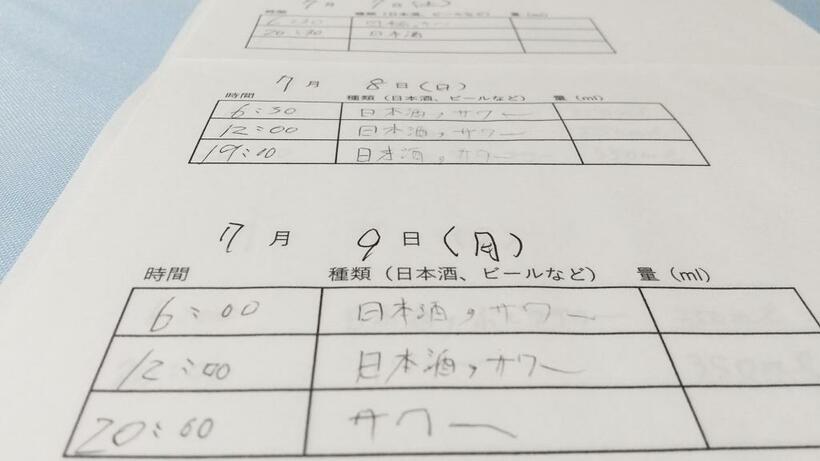 7月 7日(土)
時間 種類（日本酒、ビールなど） 量（ml）
20:30 日本酒
7月 8日(日)
時間 種類（日本酒、ビールなど） 量（ml）
6:30 日本酒,サワー
12:00 日本酒,サワー
19:00 日本酒,サワー
7月 9日(月)
時間 種類（日本酒、ビールなど） 量（ml）
6:00 日本酒,サワー
12:00 日本酒,サワー
20:00 サワー